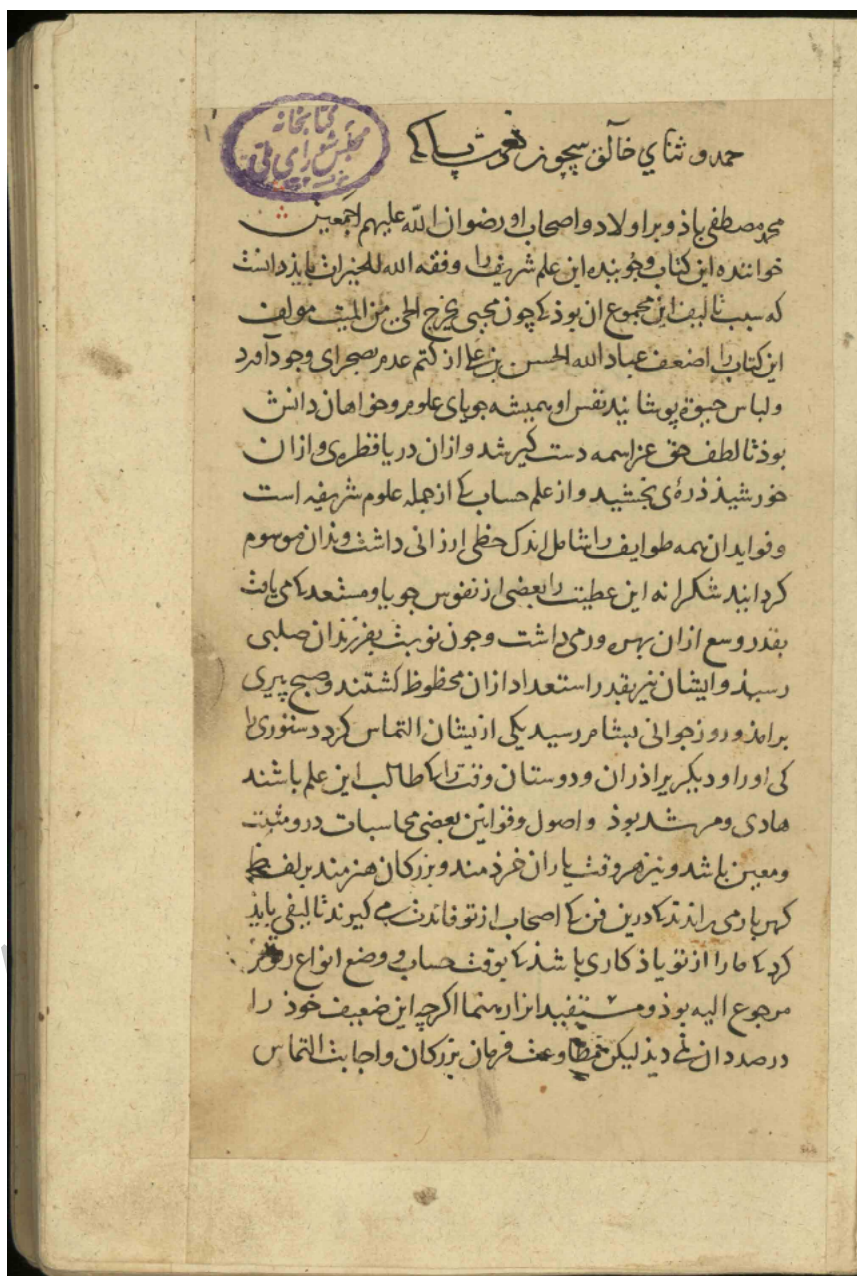 کتابخانه
مجلس شورای ملی
حمد و ثنای خالق بیچون نعوت پاک
محمد مصطفی باذ و بر اولاد و اصحاب او رضوان الله علیهم اجمعین
خواننده این کتاب و جوینده این علم شریف را وفقه الله للخیرات بایذ دانست
که سبب تالیف این مجموع ان بوذ که چون محیی یخرج الحی من المیت مولف
این کتاب را اضعف عباد الله الحسن بن علی از کتم عدم بصحرای وجود آورد
و لباس حیوة پوشانید نفس او همیشه جویای علوم و خواهان دانش
بوذ تا لطف حق عز اسمه دست کیر شد و ازان دریا قطره‌ی و ازان
خورشیذ ذره‌ی بخشید و از علم حساب که از جمله علوم شریفه است
و فواید ان همه طوایف را شامل اندک حظی ارزانی داشت و بذان موسوم
کردانید شکرانه این عطیت را بعضی از نفوس جویا و مستعد که می یافت
بقدر وسع ازان بهره ور می داشت و چون نوبت بفرزندان صلبی
رسیذ و ایشان نیز بقدر استعداد ازان محظوظ کشتند و صبح پیری
برامذ و روز جوانی بشام رسید یکی ازیشان التماس کرد دستوری را
کی او را و دیکر براذران و دوستان وقت را که طالب این علم باشند
هادی و مرشد بوذ و اصول و قوانین بعضی محاسبات درو مثبت
و معین باشد و نیز هر وقت یاران خرذمند و بزرکان هنرمند بر لفظ
کهربار می راندند که درین فن که اصحاب از تو فائدت می کیرند تالیفی بایذ
کرد که ما را از تو یاذکاری باشذ که بوقت حساب و وضع انواع رموز
مرجوع الیه بوذ و مستفید ابزار هنما اکرچه این ضعیف خوذ را
در صدد ان نمی دیذ لیکن مطاوعت فرمان بزرکان و اجابت التماس